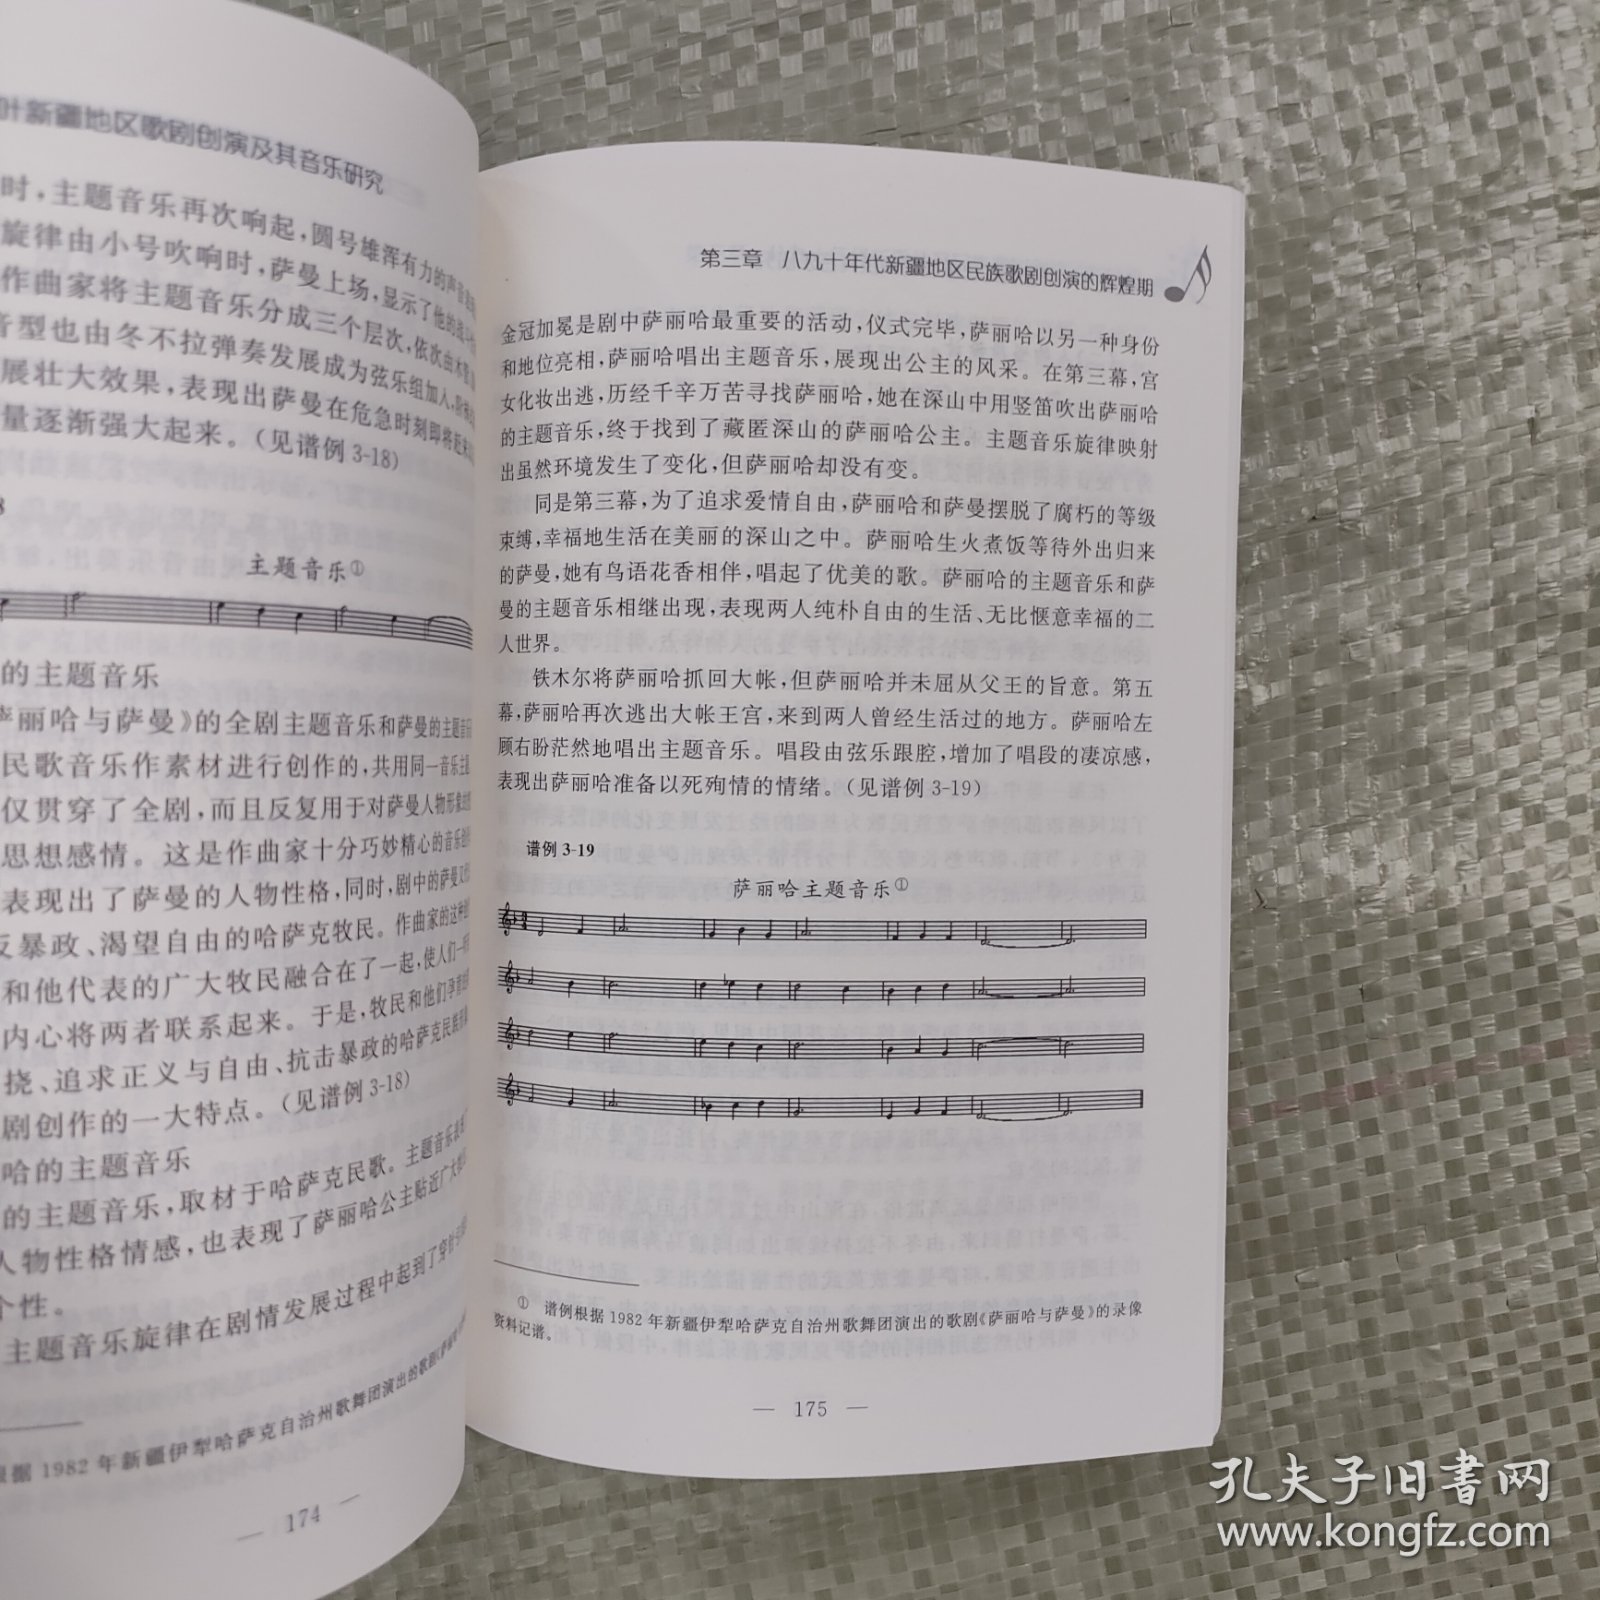 叶新疆地区歌剧创演及其音乐研究
时，主题音乐再次响起，圆号雄浑有力的声音
旋律由小号吹响时，萨曼上场，显示了他的
作曲家将主题音乐分成三个层次，依次由木管
音型也由冬不拉弹奏发展成为弦乐组加入，
展壮大效果，表现出萨曼在危急时刻即将起来
量逐渐强大起来。（见谱例 3-18）
8
主题音乐①
的主题音乐
萨丽哈与萨曼》的全剧主题音乐和萨曼的主题音乐
民歌音乐作素材进行创作的，共用同一音乐主题
仅贯穿了全剧，而且反复用于对萨曼人物形象
思想感情。这是作曲家十分巧妙精心的音乐
表现出了萨曼的人物性格，同时，剧中的萨曼又
反暴政、渴望自由的哈萨克牧民。作曲家的这种
和他代表的广大牧民融合在了一起，使人们一
内心将两者联系起来。于是，牧民和他们孕育的
挠、追求正义与自由、抗击暴政的哈萨克民族
剧创作的一大特点。（见谱例 3-18）
哈的主题音乐
的主题音乐，取材于哈萨克民歌。主题音乐表
人物性格情感，也表现了萨丽哈公主贴近广大
个性。
主题音乐旋律在剧情发展过程中起到了穿
根据 1982 年新疆伊犁哈萨克自治州歌舞团演出的歌剧《萨丽
— 174 —
第三章 八九十年代新疆地区民族歌剧创演的辉煌期
金冠加冕是剧中萨丽哈最重要的活动，仪式完毕，萨丽哈以另一种身份
和地位亮相，萨丽哈唱出主题音乐，展现出公主的风采。在第三幕，宫
女化妆出逃，历经千辛万苦寻找萨丽哈，她在深山中用竖笛吹出萨丽哈
的主题音乐，终于找到了藏匿深山的萨丽哈公主。主题音乐旋律映射
出虽然环境发生了变化，但萨丽哈却没有变。
同是第三幕，为了追求爱情自由，萨丽哈和萨曼摆脱了腐朽的等级
束缚，幸福地生活在美丽的深山之中。萨丽哈生火煮饭等待外出归来
的萨曼，她有鸟语花香相伴，唱起了优美的歌。萨丽哈的主题音乐和萨
曼的主题音乐相继出现，表现两人纯朴自由的生活、无比惬意幸福的二
人世界。
铁木尔将萨丽哈抓回大帐，但萨丽哈并未屈从父王的旨意。第五
幕，萨丽哈再次逃出大帐王宫，来到两人曾经生活过的地方。萨丽哈左
顾右盼茫然地唱出主题音乐。唱段由弦乐跟腔，增加了唱段的凄凉感，
表现出萨丽哈准备以死殉情的情绪。（见谱例 3-19）
谱例 3-19
萨丽哈主题音乐①
① 谱例根据 1982 年新疆伊犁哈萨克自治州歌舞团演出的歌剧《萨丽哈与萨曼》的录像
资料记谱。
— 175 —
孔夫子旧书网
www.kongfz.com